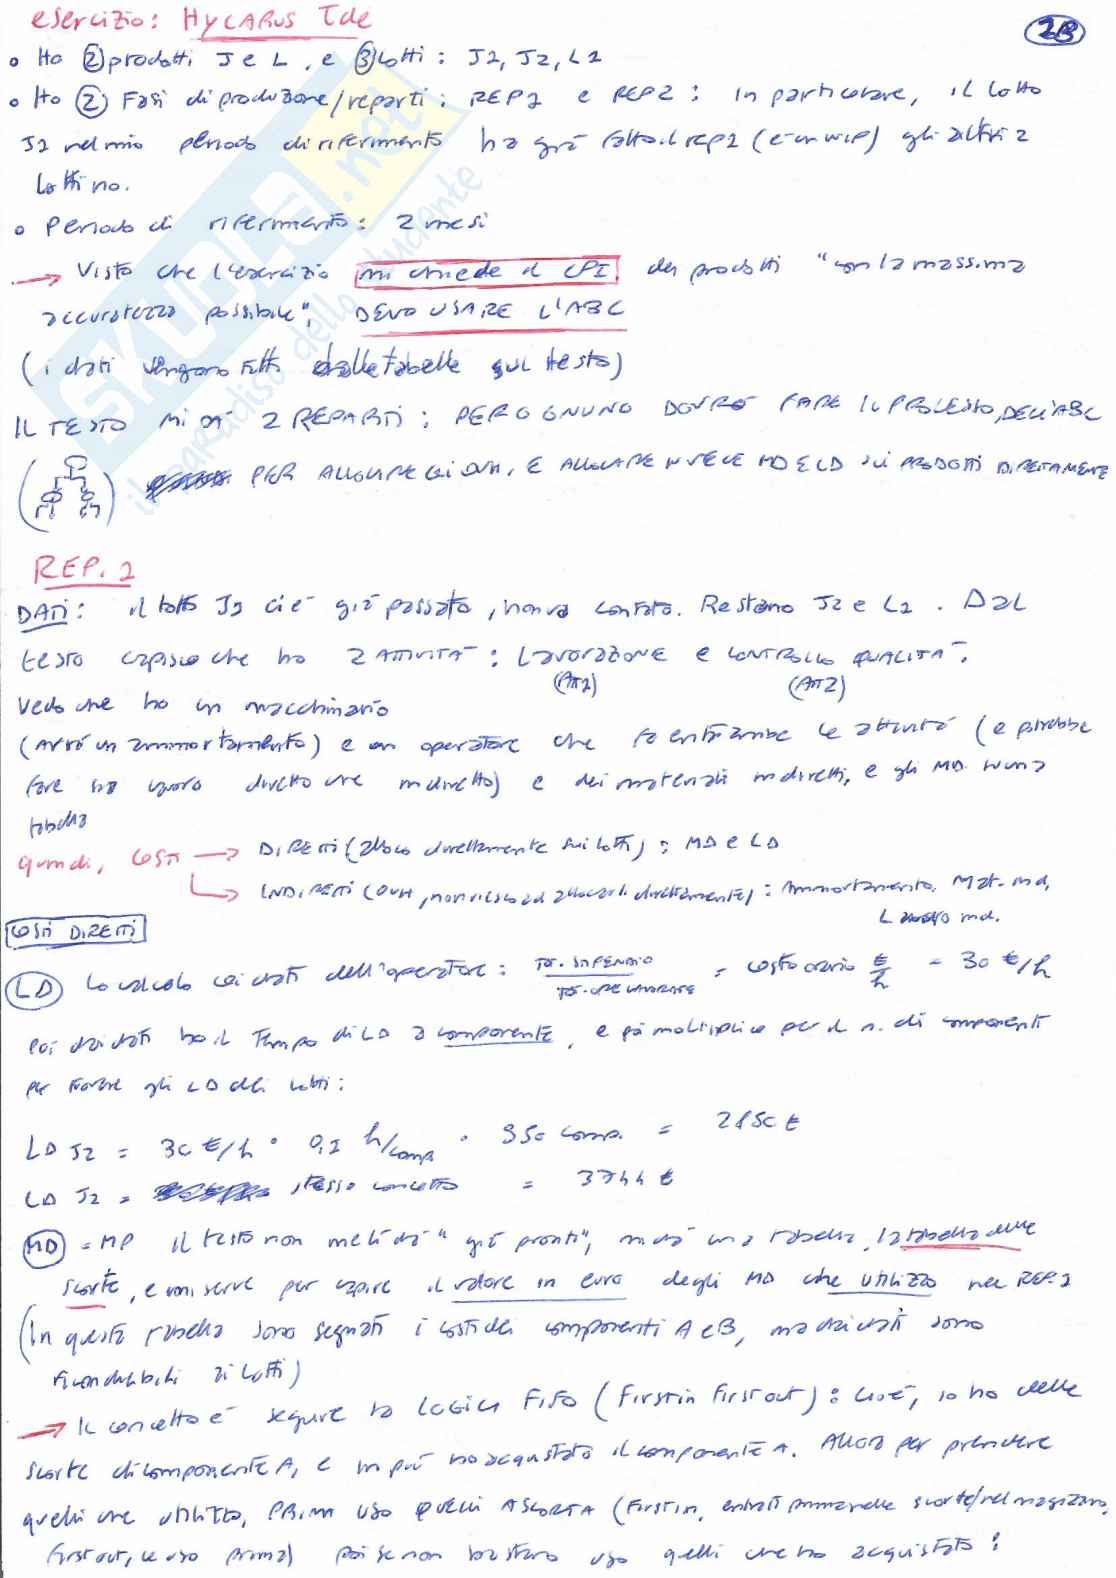 esercizio: HYCARUS Tde
2B
• Ho 2 prodotti J e L, e 3 lotti: J1, J2, L1
• Ho 2 Fasi di produzione/reparti: REP1 e REP2: in particolare, il lotto
J1 nel mio periodo di riferimento ha già fatto il rep1 (è un wip) gli altri 2
lotti no.
• Periodo di riferimento: 2 mesi
→ Visto che l'esercizio mi chiede il CPI dei prodotti "con la massima
accuratezza possibile", DEVO USARE L'ABC
(i dati vengono tutti dalle tabelle sul testo)
IL TESTO MI DÀ 2 REPARTI: PER OGNUNO DOVRÒ FARE IL PROCESSO DELL'ABC
PER ALLOCARE GLI OVH, E ALLOCARE INVECE MD E LD SUI PRODOTTI DIRETAMENTE
REP. 1
DATI: il lotto J1 ci è già passato, non va contato. Restano J2 e L1. Dal
testo capisco che ho 2 ATTIVITÀ: LAVORAZIONE e CONTROLLO QUALITÀ.
(ATT1) (ATT2)
Vedo che ho un macchinario
(avrò un ammortamento) e un operatore che fa entrambe le attività (e potrebbe
fare sia lavoro diretto che indiretto) e dei materiali indiretti, e gli MD in una
tabella
quindi, COSTI → DIRETTI (alloco direttamente sui lotti): MD e LD
→ INDIRETTI (OVH, non riesco ad allocarli direttamente): Ammortamento, Mat. ind,
Lavoro ind.
COSTI DIRETTI
LD Lo calcolo coi dati dell'operatore: TOT. STIPENDIO / TOT. ORE LAVORATE = costo orario €/h = 30 €/h
Poi dai dati ho il Tempo di LD a componente, e poi moltiplico per il n. di componenti
per trovare gli LD dei lotti:
LD J2 = 30 €/h • 0,1 h/comp • 950 comp. = 2850 €
LD J2 = stesso concetto = 3744 €
MD = MP il testo non me li dà "già pronti", mi dà una tabella, la tabella delle
scorte, e mi serve per capire il valore in euro degli MD che utilizzo nel REP.1
(In questa tabella sono segnati i costi dei componenti A e B, ma dai dati sono
riconducibili ai lotti)
→ Il concetto è seguire la LOGICA FIFO (First in First out): cioè, io ho delle
scorte di componente A, e in più ho acquistato il componente A. Allora per prendere
quelli che utilizzo, PRIMA uso QUELLI A SCORTA (First in, entrati prima nelle scorte/nel magazzino,
first out, le uso prima) poi se non bastano uso quelli che ho acquistato:
SKUOLA.net
il paradiso dello studente